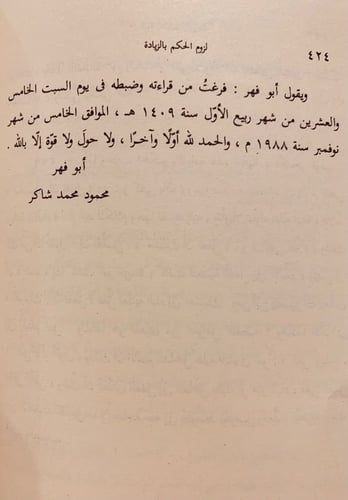 ٤٢٤
لزوم الحكم بالزيادة
ويقول أبو فهر : فرغتُ من قراءته وضبطه فى يوم السبت الخامس
والعشرين من شهر ربيع الأوّل سنة ١٤٠٩ هـ ، الموافق الخامس من شهر
نوفمبر سنة ١٩٨٨ م ، والحمد لله أوّلًا وآخرًا ، ولا حولَ ولا قوّة إلّا بالله .
أبو فهر
محمود محمد شاكر